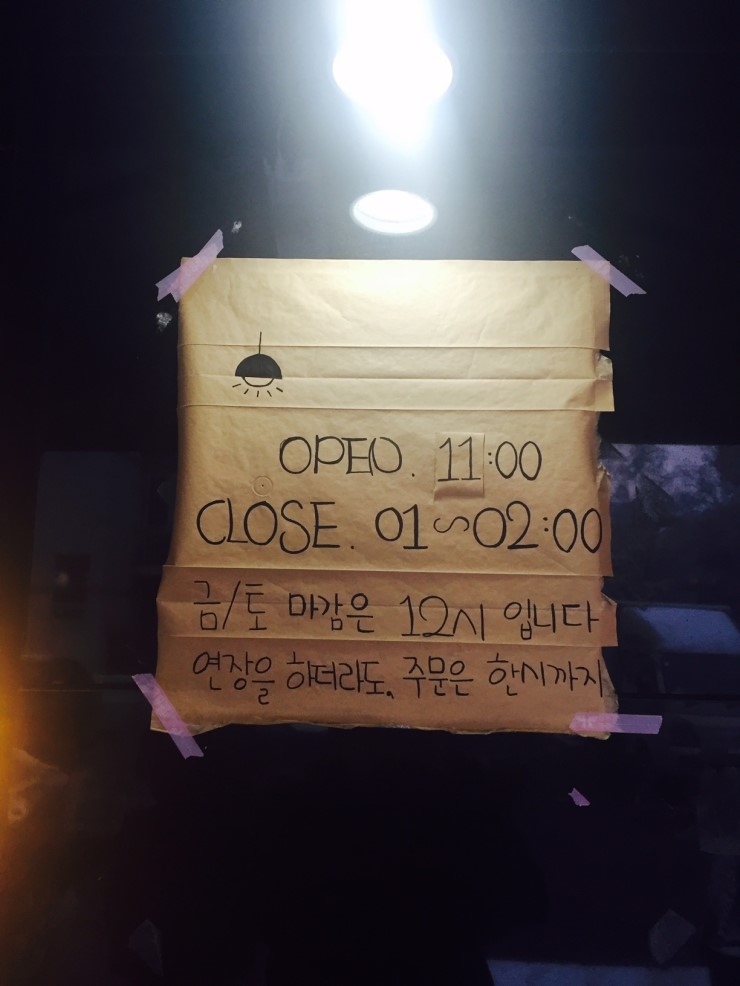 OPEN. 11:00
CLOSE. 01~02:00
금/토 마감은 12시 입니다
연장을 하더라도, 주문은 한시까지